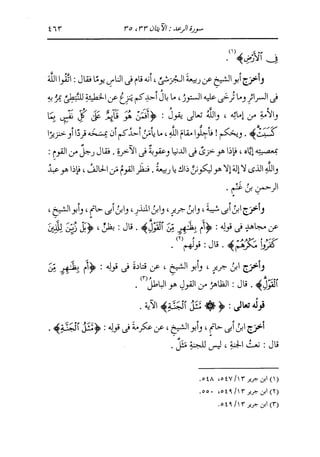 سورة الرعد : الآيتان ٣٣، ٣٥
٤٦٣
فِى ٱلْأَرْضِ﴾(١).
وأخرج أبو الشيخ عن ربيعةَ الجُرَشىِّ، أنه قام فى الناسِ يومًا فقال : اتَّقُوا اللَّهَ
فى السرائرِ وما تُرْخَى عليه الستورُ، ما بالُ أحدِكم يَنزِعُ عن الخطيئةِ للنَّبَطىِّ يمرُّ به
والأمةِ من إماءِ اللهِ، واللَّهُ تعالى يقولُ : ﴿أَفَمَنْ هُوَ قَآئِمٌ عَلَىٰ كُلِّ نَفْسٍۭ بِمَا
كَسَبَتْ﴾. ويحَكم ! فأجِلُّوا مَقامَ اللهِ، ما يأمَنُ أحدُكم أن يَمسَخَه قردًا أو خنزيرًا
بمعصيتِه إيَّاه، فإذا هو خزىٌ فى الدنيا وعقوبةٌ فى الآخرةِ. فقال رجلٌ من القومِ :
واللَّهِ الذى لا إلهَ إلا هو ليكونَنَّ ذاك يا ربيعةُ. فنظَر القومُ مَن الحالفُ، فإذا هو عبدُ
الرحمنِ بنُ غَنْمٍ.
وأخرج ابنُ أبى شيبةَ، وابنُ جريرٍ، وابنُ المنذرِ، وابنُ أبى حاتمٍ، وأبو الشيخِ،
عن مجاهدٍ فى قوله : ﴿أَم بِظَٰهِرٍ مِّنَ ٱلْقَوْلِ﴾. قال : بظنٍّ، ﴿بَلْ زُيِّنَ لِلَّذِينَ
كَفَرُوا۟ مَكْرُهُمْ﴾. قال : قولُهم(٢).
وأخرج ابنُ جريرٍ، وأبو الشيخِ، عن قتادةَ فى قوله : ﴿أَم بِظَٰهِرٍ مِّنَ
ٱلْقَوْلِ﴾. قال : الظاهرُ من القولِ هو الباطلُ(٣).
قولُه تعالى : ﴿۞ مَّثَلُ ٱلْجَنَّةِ﴾ الآية.
أخرج ابنُ أبى حاتمٍ، وأبو الشيخِ، عن عكرمةَ فى قوله : ﴿مَّثَلُ ٱلْجَنَّةِ﴾.
قال : نعتُ الجنةِ، ليس للجنةِ مَثَلٌ.
(١) ابن جرير ١٣/ ٥٤٧، ٥٤٨.
(٢) ابن جرير ١٣/ ٥٤٩، ٥٥٠.
(٣) ابن جرير ١٣/ ٥٤٩.